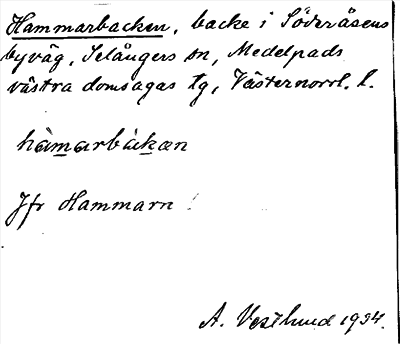 Hammarbacken, backe i Söderåsens
byväg, Selångers sn, Medelpads
västra domsagas tg, Västernorrl. l.
hàmarbàkæn
Jfr Hammarn!
A. Vestlund 1934.